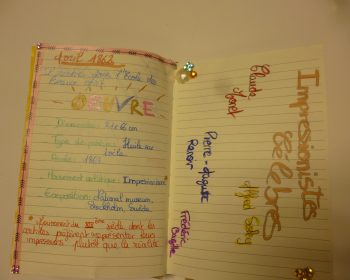 Avril 1862
l'École des
Beaux-Arts
OEUVRE
Dimension : cm
Type de peinture : Huile sur
toile
Date : 1867
Mouvement artistique : Impressionnisme
Exposition : National museum,
Stockholm, Suède.
Mouvement du XIXème siècle dont les
artistes préfèrent représenter leurs
impressions plutôt que la réalité
Impressionistes
célèbres
Claude
Monet
Pierre-Auguste
Renoir
Alfred Sisley
Frédéric
Bazille